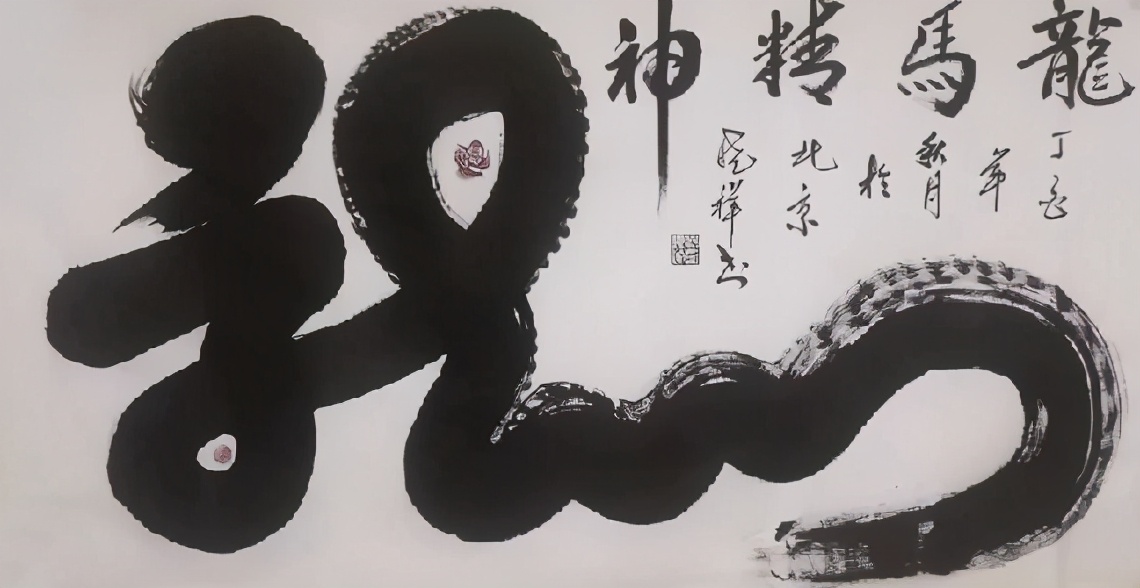 龍馬精神
丁酉
年
秋月
於
北京
晓祥书
龍